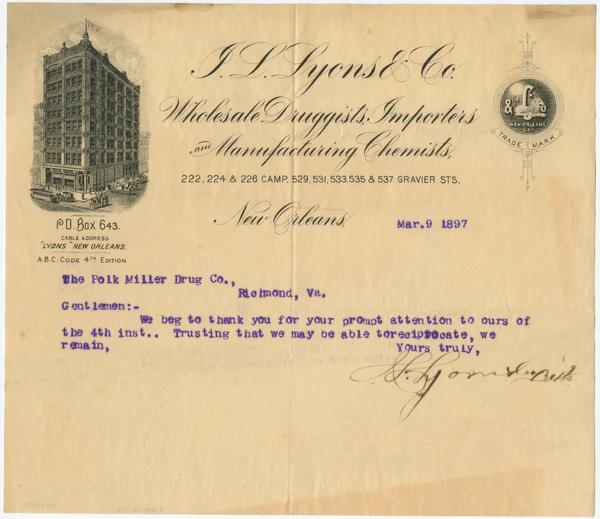 I. L. Lyons & Co.
Wholesale Druggists, Importers
and Manufacturing Chemists,
222, 224 & 226 CAMP, 529, 531, 533, 535 & 537 GRAVIER STS.
& L Co
NEW ORLEANS,
LA.
TRADE MARK.
P.O. Box 643.
CABLE ADDRESS
"LYONS" NEW ORLEANS.
A.B.C. CODE 4TH EDITION
New Orleans, Mar. 9 1897
The Polk Miller Drug Co.,
Richmond, Va.
Gentlemen:-
We beg to thank you for your prompt attention to ours of
the 4th inst.. Trusting that we may be able toreciprocate, we
remain, Yours truly,
I. L. Lyons & Co